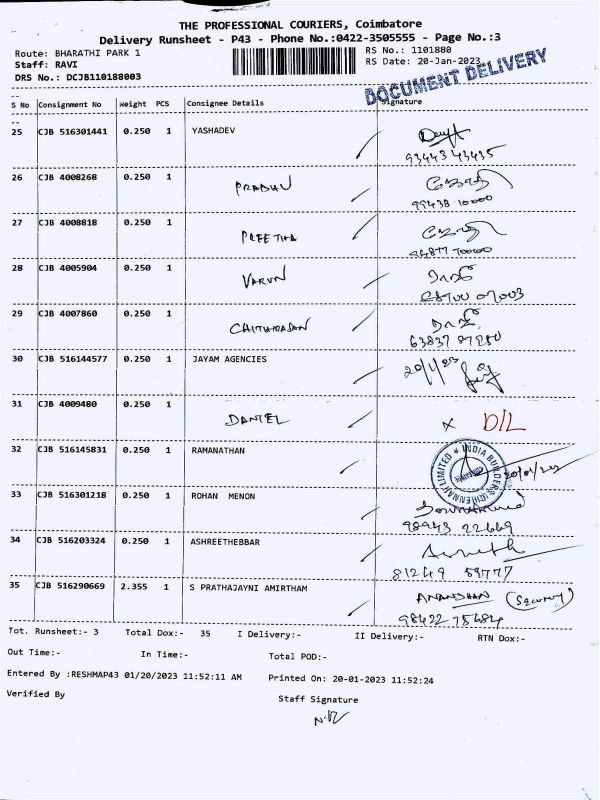 THE PROFESSIONAL COURIERS, Coimbatore
Delivery Runsheet - P43 - Phone No.:0422-3505555 - Page No.:3
Route: BHARATHI PARK 1 RS No.: 1101880
Staff: RAVI RS Date: 20-Jan-2023
DRS No.: DCJB110188003
DOCUMENT DELIVERY
S No Consignment No Weight PCS Consignee Details Signature
25 CJB 516301441 0.250 1 YASHADEV
93443 43435
26 CJB 4008268 0.250 1 PRABHU
99438 10000
27 CJB 4008818 0.250 1 PREETHA
94877 70000
28 CJB 4005904 0.250 1 VARUN
29 CJB 4007860 0.250 1 CHITHRASAN
63837 87280
30 CJB 516144577 0.250 1 JAYAM AGENCIES 20/1/23
31 CJB 4009480 0.250 1 DANIEL x D/L
32 CJB 516145831 0.250 1 RAMANATHAN
INDIA BUILDERS (CHENNAI) LIMITED
33 CJB 516301218 0.250 1 ROHAN MENON
98943 22669
34 CJB 516203324 0.250 1 ASHREETHEBBAR
81249 59777
35 CJB 516290669 2.355 1 S PRATHAJAYNI AMIRTHAM ANANDHAN (Security)
98422 75684
Tot. Runsheet:- 3 Total Dox:- 35 I Delivery:- II Delivery:- RTN Dox:-
Out Time:- In Time:- Total POD:-
Entered By :RESHMAP43 01/20/2023 11:52:11 AM Printed On: 20-01-2023 11:52:24
Verified By Staff Signature